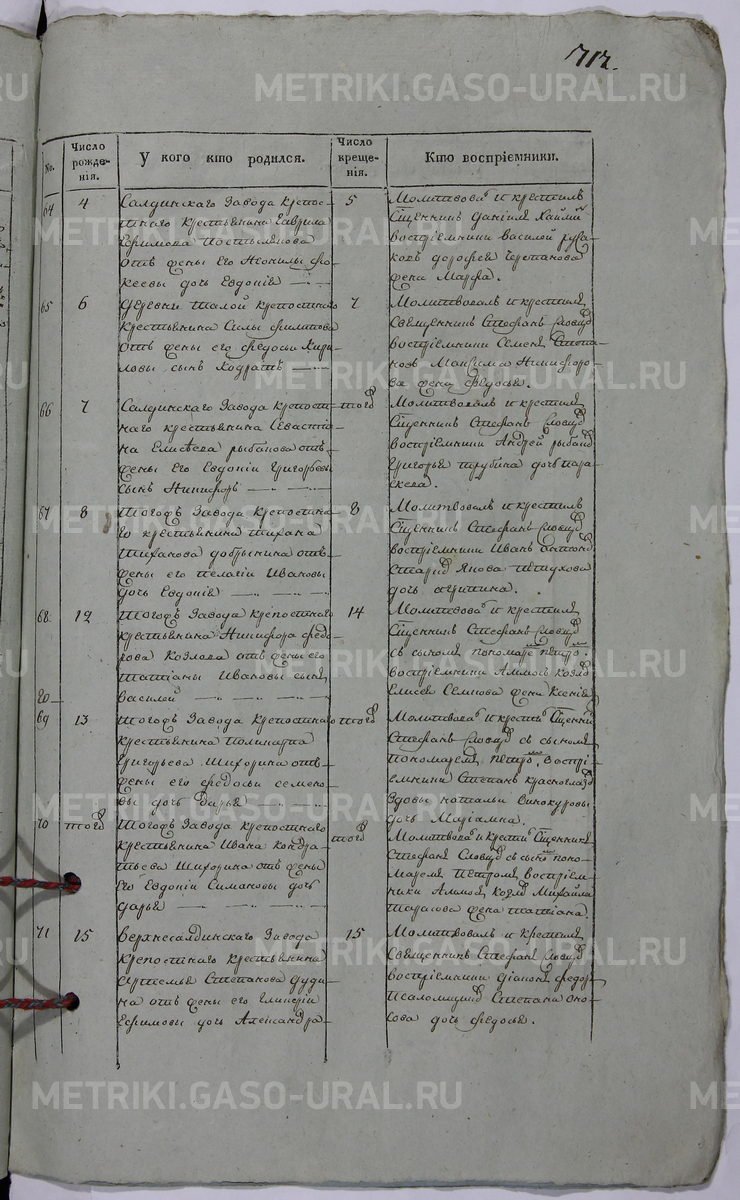 717.
No.
Число рожде-
нія.
У кого кто родился.
Число креще-
нія.
Кто воспріемники.
64
4
Салдинскаго Завода крепос-
тнаго крестьянина Гаврила
Ефимова
отъ жены Его Агонилы Фо-
кеевы дочь Евдокія
5
Молитвова и крестилъ
Сщенникъ Даніилъ
воспріемники Василей Руса-
ковъ дорофея Черепанова
жена Марфа.
65
6
Деревни Талой крепостнаго
крестьянина Силы Филипова
отъ жены его Федосьи Кири-
ловы сынъ Кодратъ
7
Молитвовалъ и крестилъ
Священникъ Стефанъ Словцо
воспріемники Семенъ Степа-
новъ Максима Никифоро-
ва жена Федосья.
66
7
Салдинскаго Завода крепост-
наго крестьянина Севастья-
на Елисеева рыбакова отъ
жены Его Евдокіи Григорьевы
сынъ Никифоръ
тогд
Молитвовалъ и крестилъ
Сщенникъ Стефанъ Словцо
воспріемники Андрей рыбако
Григорья трубина дочь Пара-
скева.
67
8
Тогожъ Завода крепостна-
го крестьянина Тихана
Тиханова добрынина отъ
жены его Пелагіи Ивановы
дочь Евдокія
8
Молитвовалъ и крестилъ
Сщенникъ Стефанъ Словцо
воспріемники Иванъ
Петухова
дочь Агрипина.
68.
12
Тогожъ Завода крепостнаго
крестьянина Никифора Федо-
рова Козлова отъ жены его
Татіаны Ивановы сынъ
Василей
14
Молитвова и крестилъ
Сщенникъ Стефанъ Словцо
съ сыномъ пономаре Петро.
воспріемники Аммосъ Козло
Елисея Семкова жена Ксенія
69
13
Тогожъ Завода крепостнаго
крестьянина Поликарпа
Григорьева Шихорина отъ
жены его Федосьи Семено-
вы дочь Дарья
тогд
Молитвова и крести Сщенни
Стефанъ Словцо съ сыномъ
пономаремъ Петро, воспрі-
емники Степанъ Красноглазо
Вдовы Натальи Винокуровы
дочь Маріамна.
70
тогд
Тогожъ Завода крепостнаго
крестьянина Ивана Кондра-
тьева Шихорина отъ жены
Его Евдокіи Симановы дочь
Дарья
тогд
Молитвова и крести Сщенникъ
Стефанъ Словцо съ сыно поно-
маремъ Петромъ воспріем-
ники Амосъ Козло Михайла
Тарасова жена татіана.
71
15
Верхнесалдинскаго Завода
крепостнаго крестьянина
Артемья Степанова Дуди-
на отъ жены его Гликеріи
Ефимовы дочь Александра
15
Молитвовалъ и крестилъ
Священникъ Стефанъ Словцо
воспріемники діаконъ Федор
Псаломщико Степана Око-
сова дочь Федосья.
METRIKI.GASO-URAL.RU